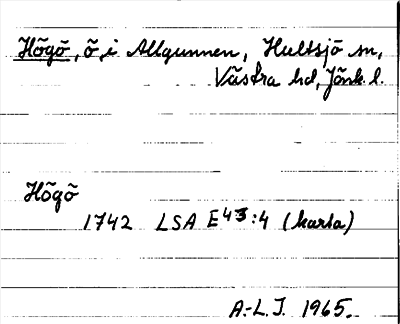 Högö, ö, i Allgunnen, Hultsjö sn,
Västra hd, Jönk l.
Högö
1742 LSA E43:4 (karta)
A.-L. J. 1965.